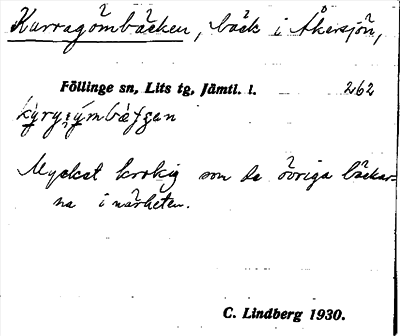 Kurragömbäcken, bäck i Åkersjön,
Föllinge sn, Lits tg, Jämtl. l. 262
Mycket krokig som de övriga bäckar-
na i närheten.
C. Lindberg 1930.